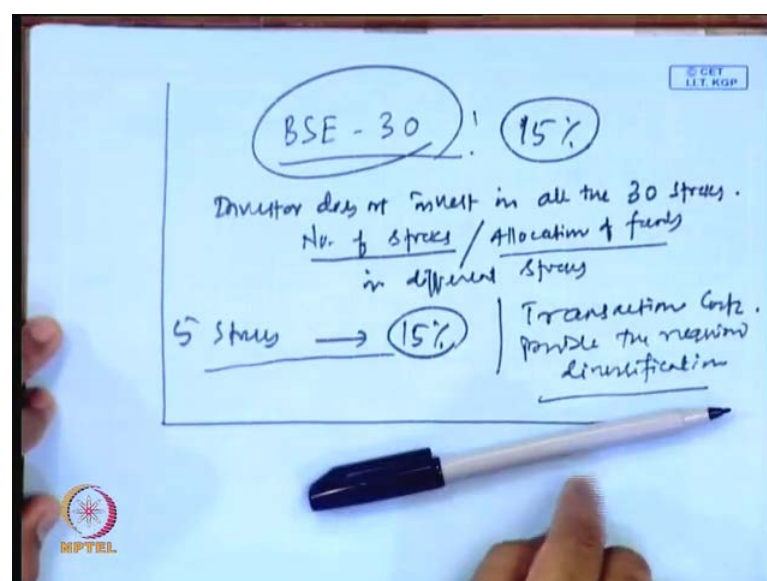 © CET
I.I.T. KGP
BSE - 30 ! 15%
Investor does not invest in all the 30 stocks.
No. of stocks / Allocation of funds
in different stocks
5 stocks → 15%
Transaction Cost.
Provide the required
diversification
NPTEL